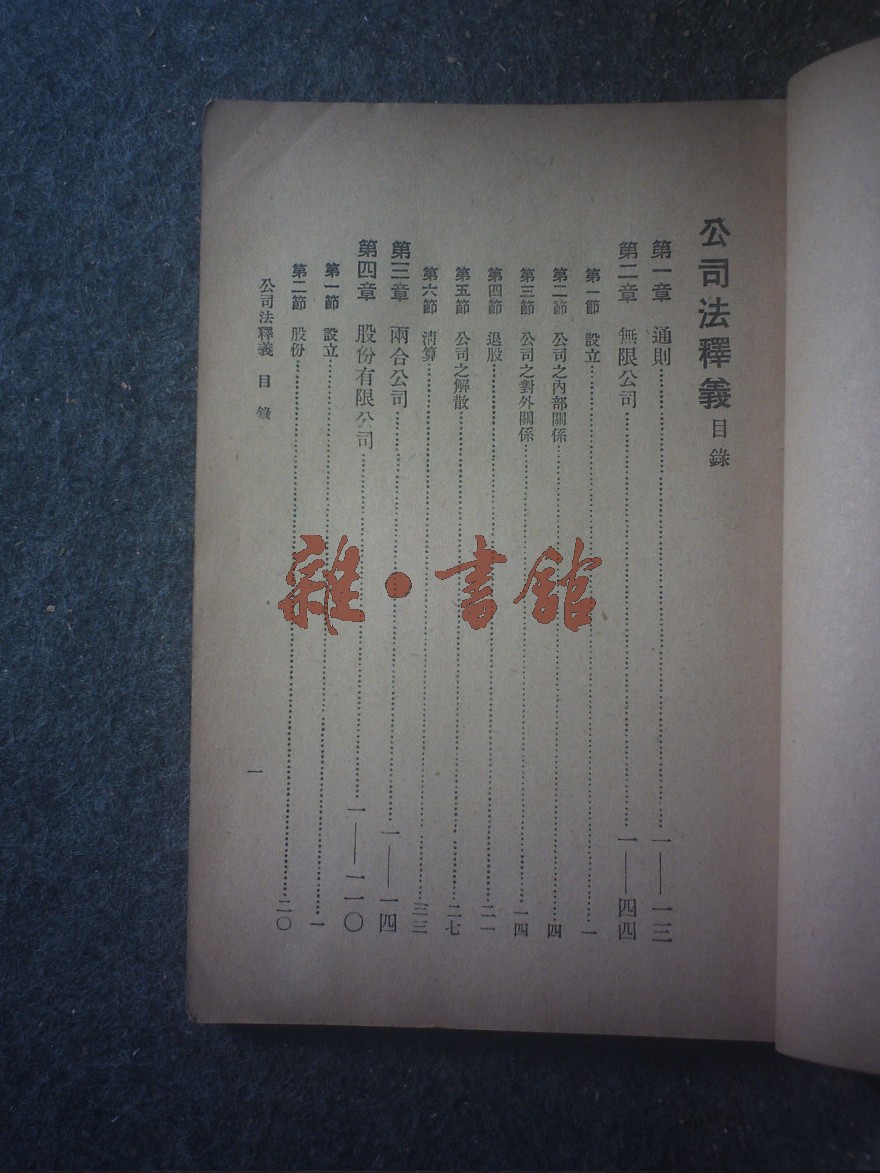 公司法釋義目錄
第一章 通則……一——一三
第二章 無限公司……一——四四
第一節 設立……一
第二節 公司之內部關係……四
第三節 公司之對外關係……一四
第四節 退股……二一
第五節 公司之解散……二七
第六節 清算……三三
第三章 兩合公司……一——一四
第四章 股份有限公司……一——一一〇
第一節 設立……一
第二節 股份……二〇
公司法釋義 目錄
一
雜·書館